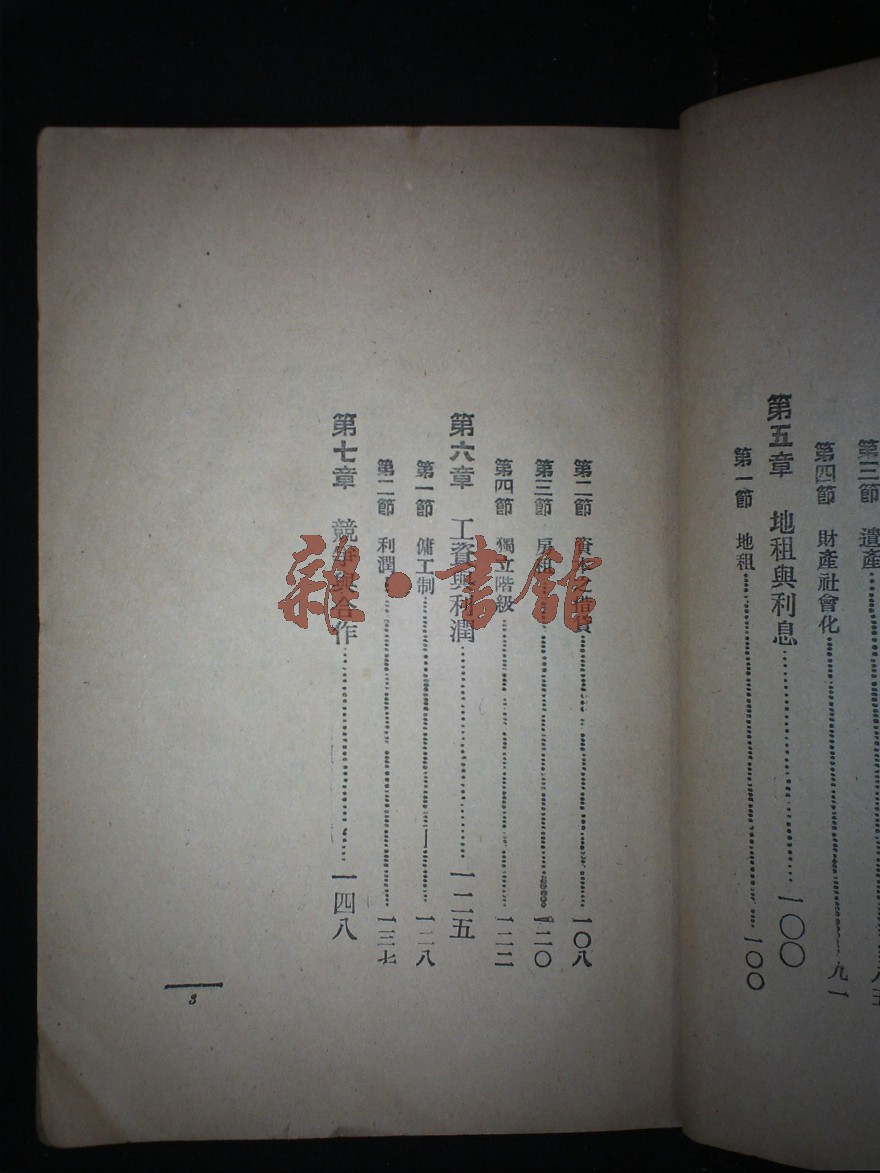 第三節 遺產……八五
第四節 財產社會化……九一
第五章 地租與利息……一〇〇
第一節 地租……一〇〇
第二節 資本之借貸……一〇八
第三節 房租……一二〇
第四節 獨立階級……一二二
第六章 工資與利潤……一二五
第一節 傭工制……一二八
第二節 利潤……一三七
第七章 競爭與合作……一四八
3
雜·書舘